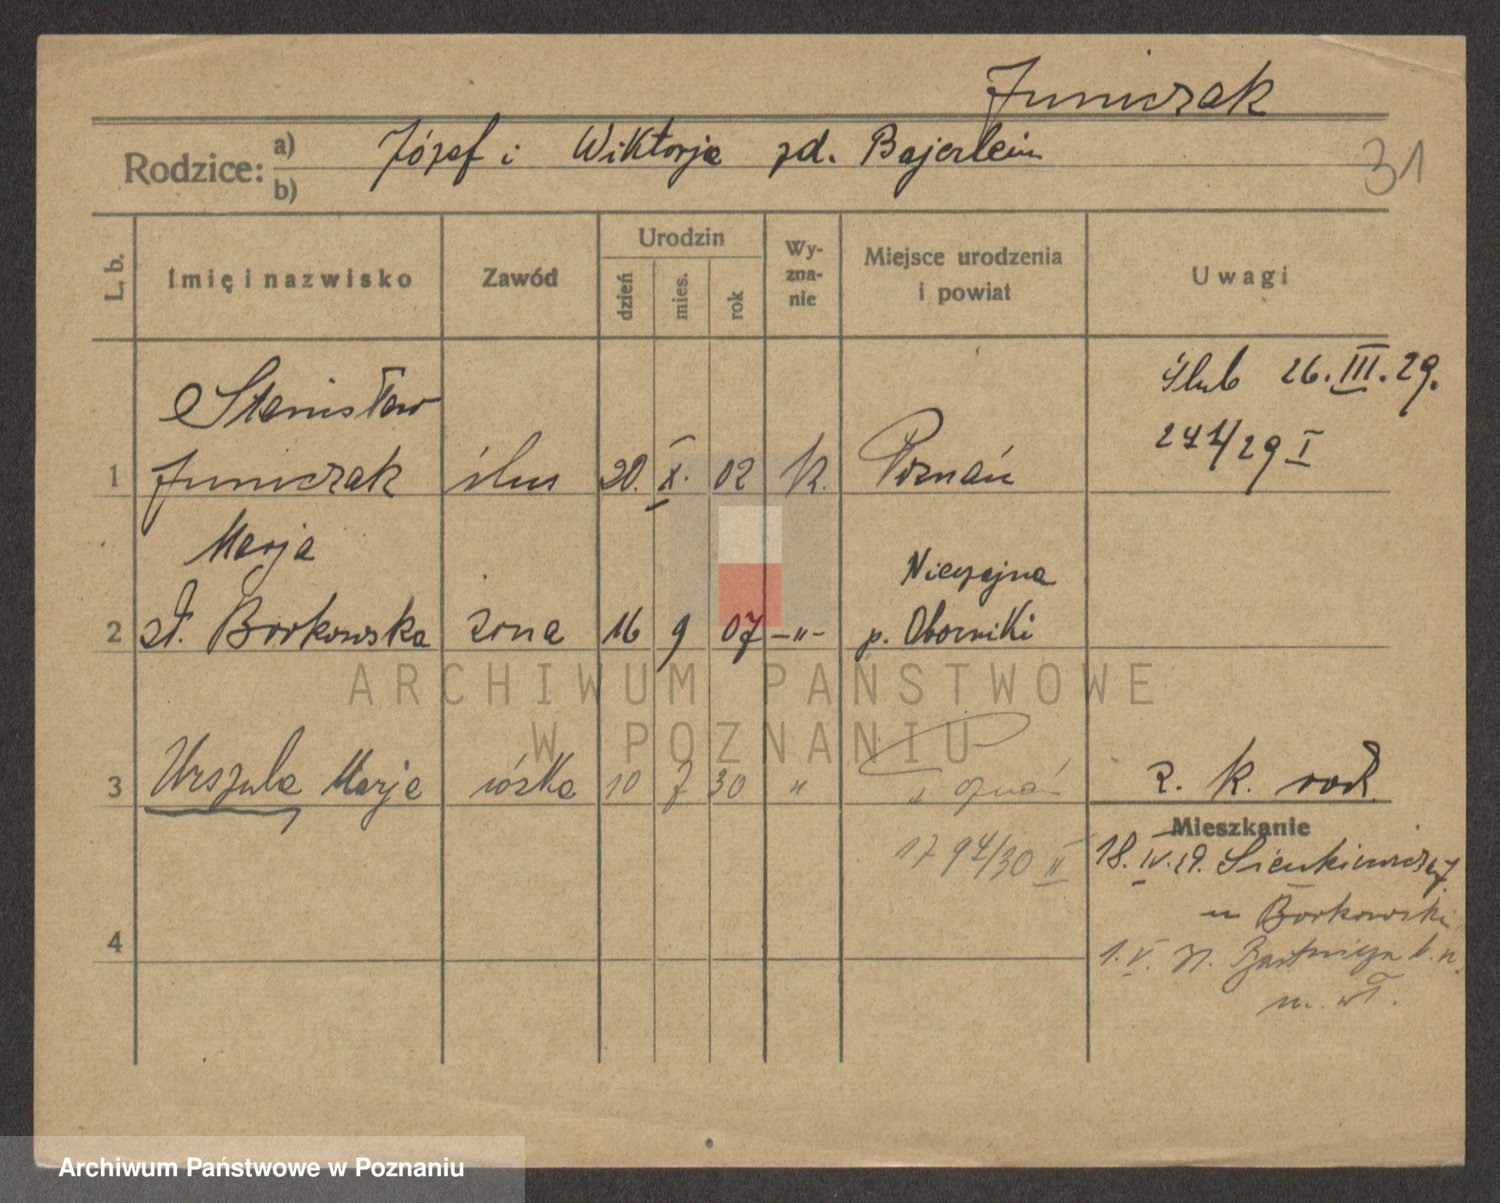 Juniczak
Rodzice: a) Józef i Wiktorja zd. Bajerlein
b)
31
L. b.
Imię i nazwisko
Zawód
Urodzin
dzień
mies.
rok
Wy-
zna-
nie
Miejsce urodzenia
i powiat
Uwagi
Ślub 26. III. 29.
271/29 I
Stanisław
1 Juniczak ślus 20. X. 02 k. Poznań
Marja
2 zd. Borkowska żona 16 9 07 -"- Nieczajna
p. Oborniki
ARCHIWUM PAŃSTWOWE
W POZNANIU
3 Urszula Marja córka 10 7 30 " Poznań
1794/30 II
2. k. rod.
Mieszkanie
18. IV. 29. Sienkiewicza 7
u Borkowski
1. V. 31.
m. wł.
4
Archiwum Państwowe w Poznaniu